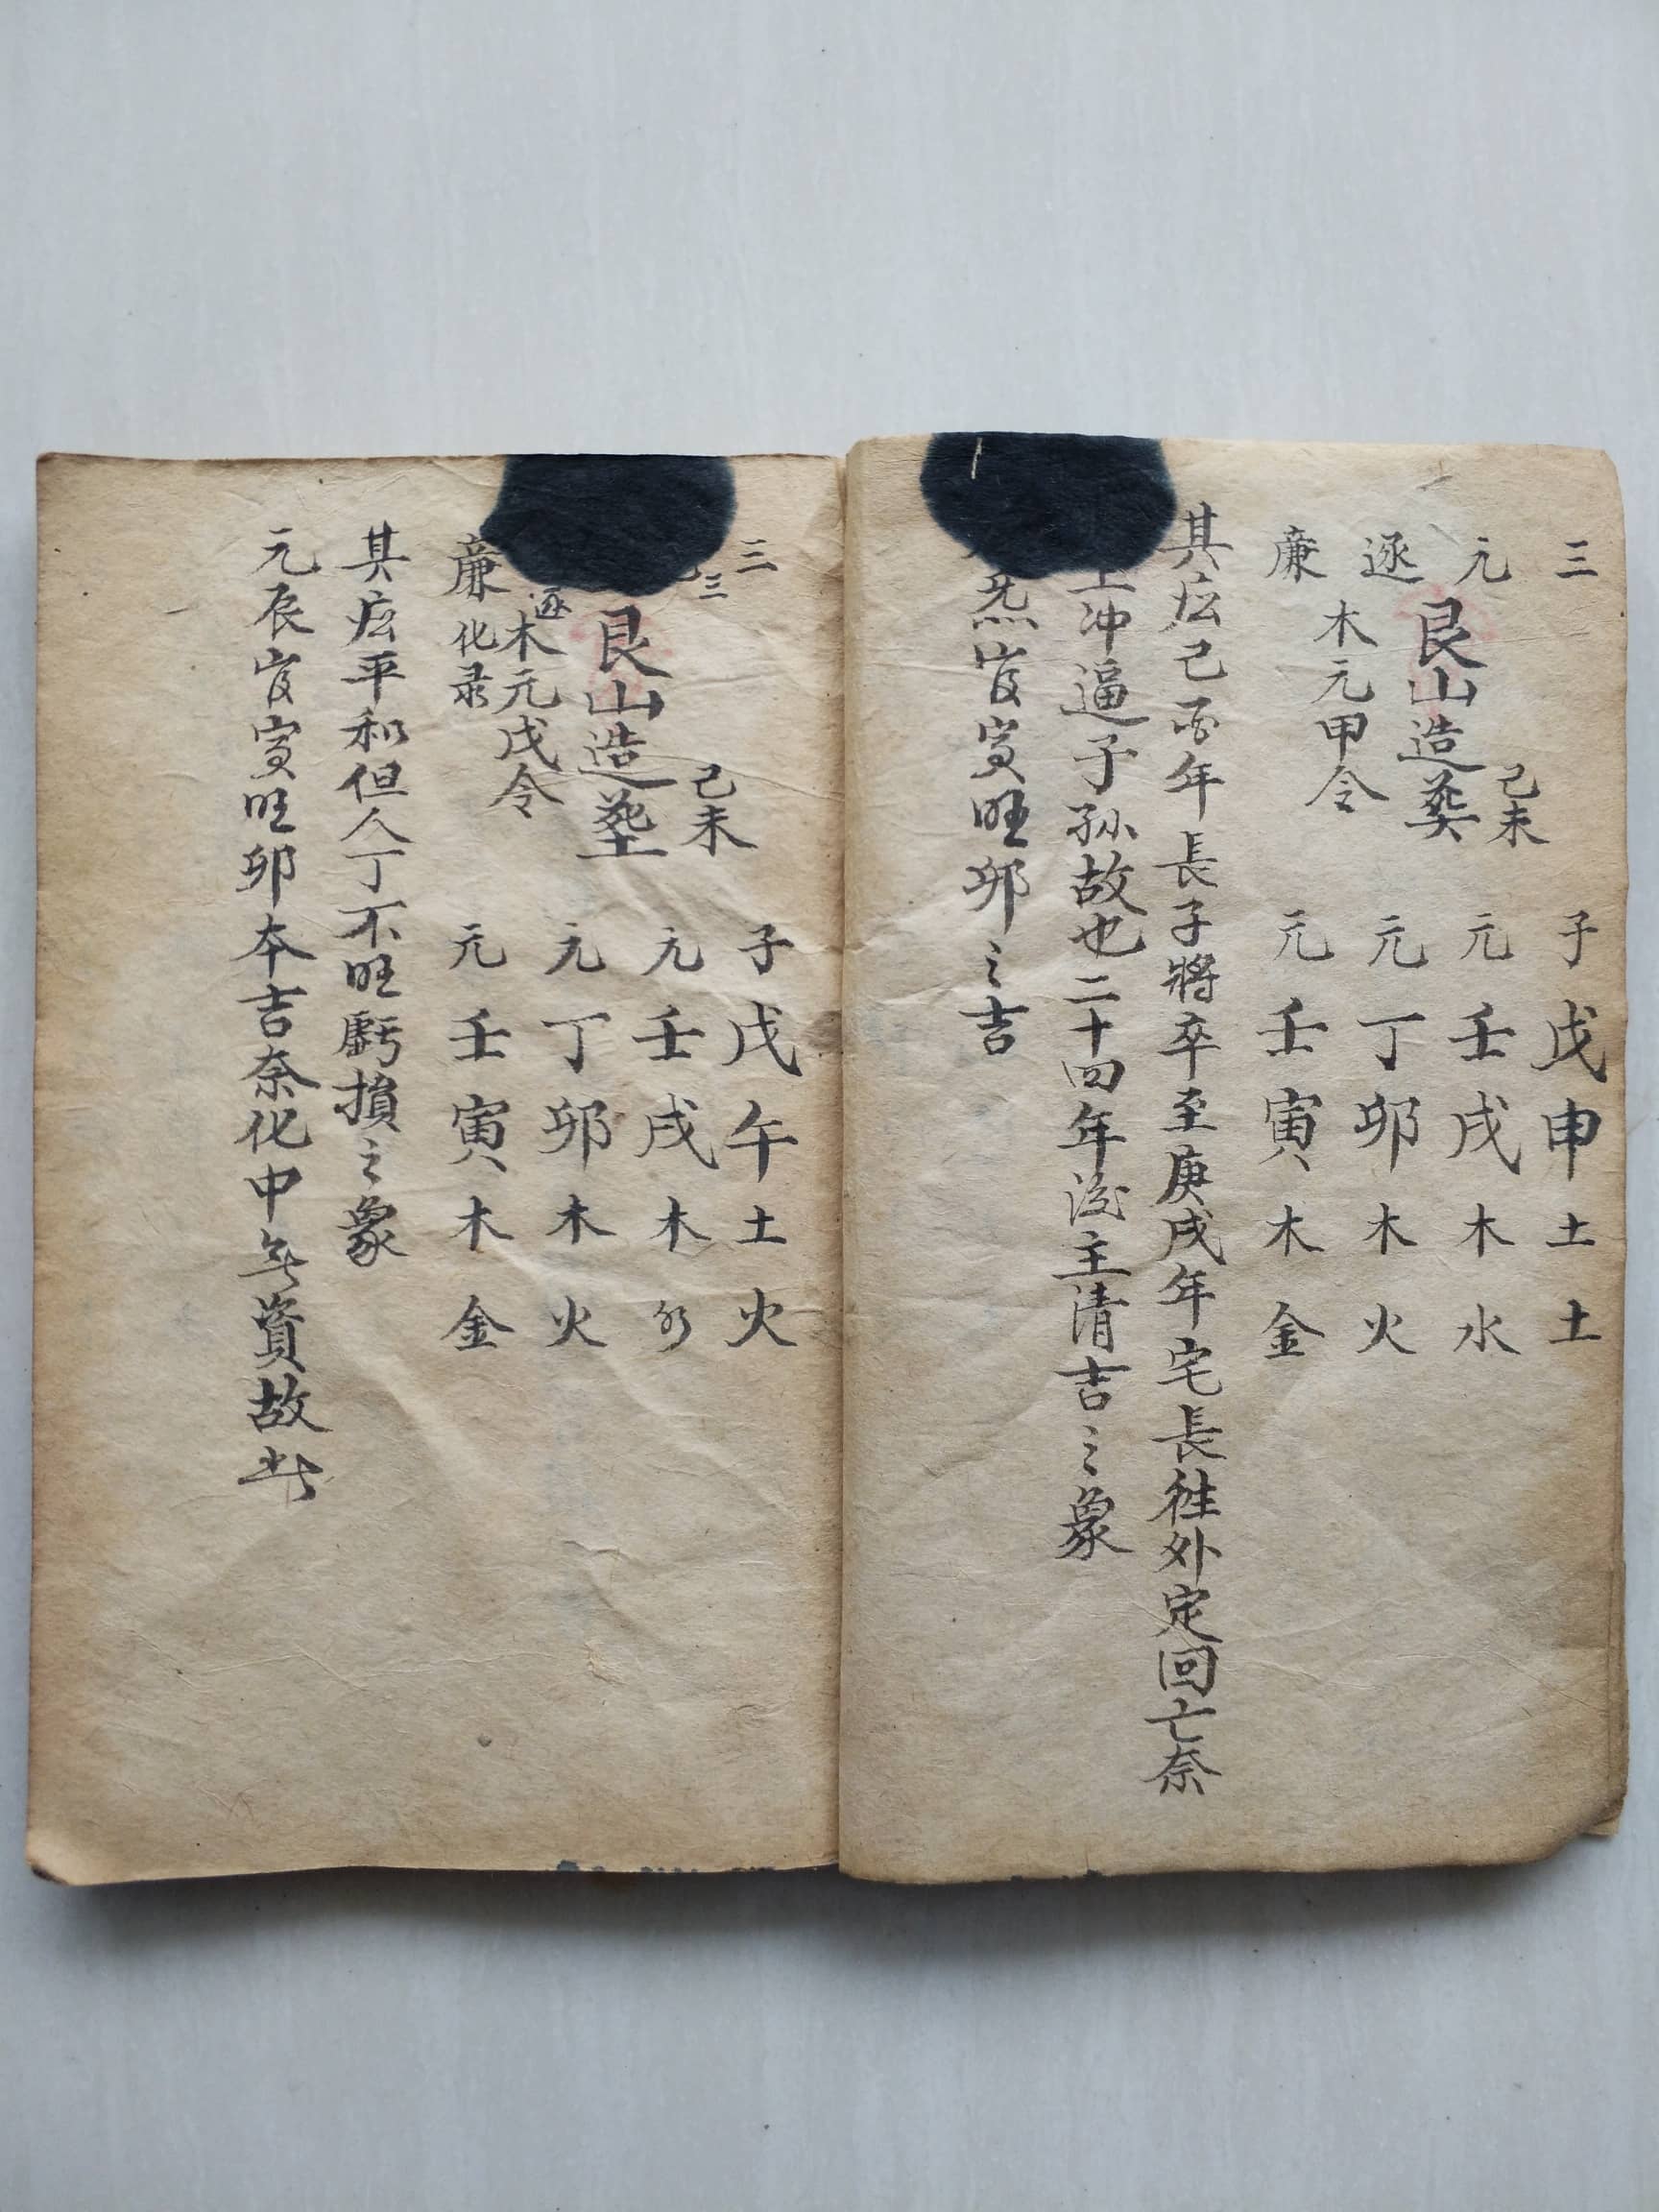 三
己未
子戊申土土
元
艮山造葬
元壬戌木水
逐
木元甲令
元丁卯木火
廉
元壬寅木金
其坛己酉年長子將卒至庚戌年宅長往外定回亡奈
冲逼子孫故也二十四年後主清吉之象
寅旺卯之吉
三
三
己未
子戊午土火
艮山造塟
元壬戌木水
逐
木元戊令
元丁卯木火
廉化录
元壬寅木金
其坛平和但人丁不旺虧損之象
元辰寅旺卯本吉奈化中無資故此